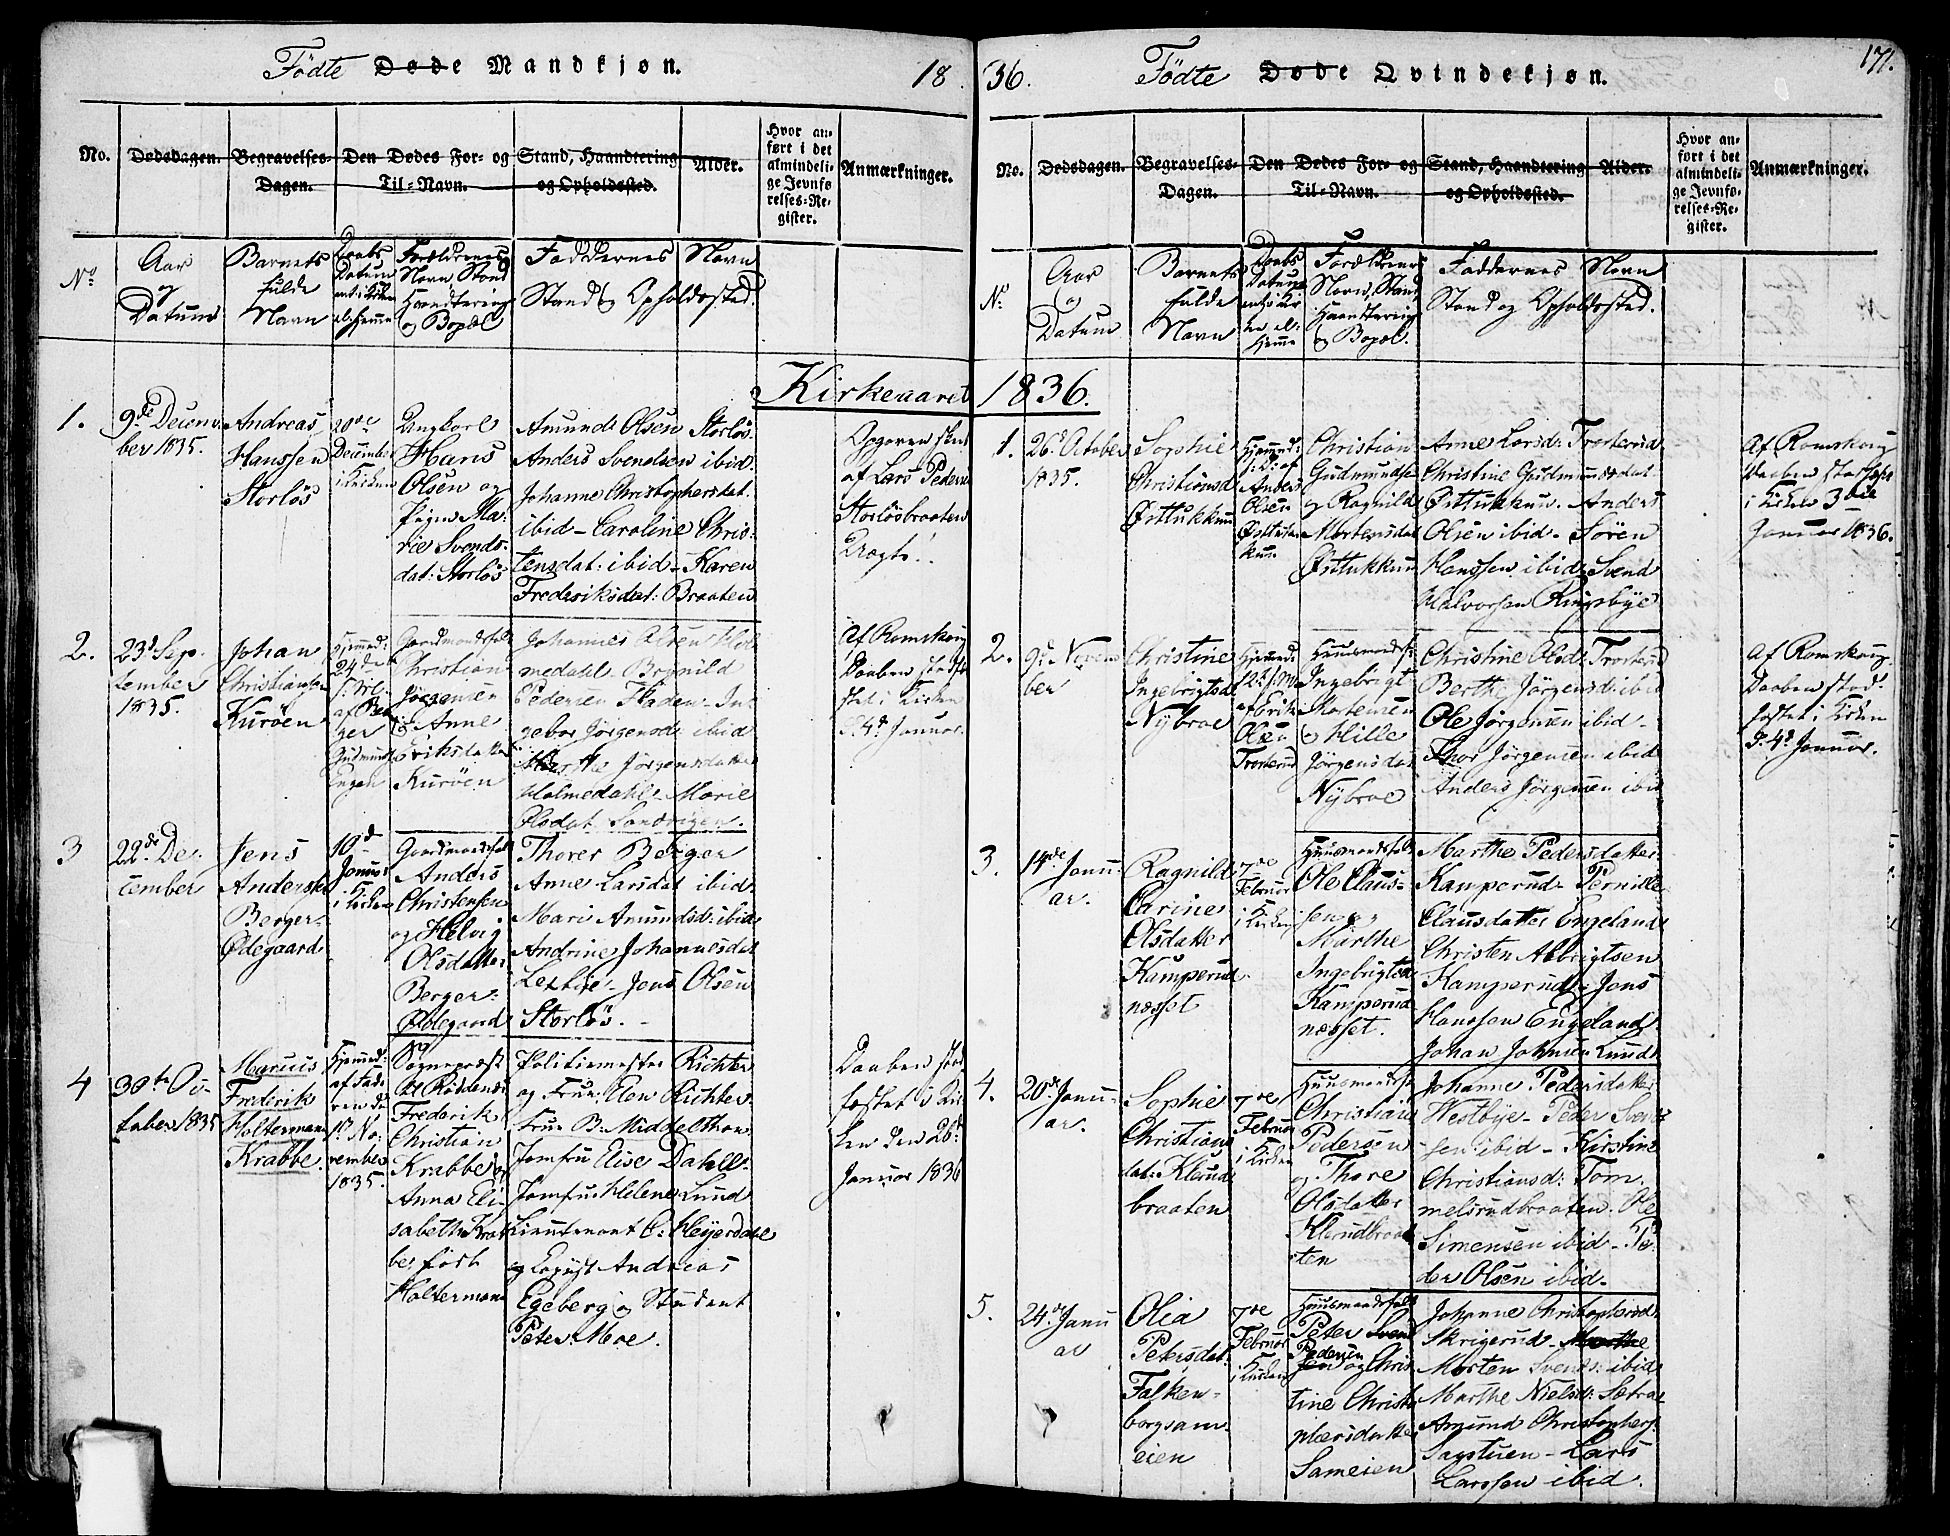 Fødte Døde Mandkjøn.
18
No.
Dødsdagen.
Begravelses-
Dagen.
Den Dødes For- og
Til-Navn.
Stand, Haandtering
og Opholdssted.
Alder.
Hvor an-
ført i det
almindeli-
ge Jevnfø
relses-Re-
gister.
Anmærkninger.
No
Aar
og
Datum
Barnets
fulde
Navn
Daabs
Datum
Forældrenes
Navn, Stand
Haandtering
og Bopæl
Faddernes Navn
Stand og Opholdssted.
Kirkeaaret
1.
9de Decem-
ber 1835.
Andreas
Hanssen
Storløs
20de
December
i Kirken
Ungkarl
Hans
Olsen og
Pigen Ma-
rie Svends-
dat: Storløs
Amund Olsen Storløs.
Anders Svendsen ibid.
Johanne Christophersdat.
ibid - Caroline Chris-
tensdat: ibid - Karen
Frederiksdat: Braaten
af Lars Pedersen
Storløsbraaten
2.
23d Sep-
tember
1835.
Johan
Christiansen
Kurøen
Hjemmed:
24de
Gaardmandsfolk
Christian
Jørgensen
og Anne
Eriksdatter
Kurøen
Johannes Olsen Hol
medahl - Bognild
Pedersen Haden - In
gebor Jørgensd: ibid
Marthe Jørgensdatter
Holmedahl - Marie
Olsdat
Af Romskoug
Daaben stadfæ
stet i Kirken
d. 4d Januar.
3
22de De-
cember
Jens
Anderssen
Berger-
Ødegaard
10d
Januar
i Kirken
Gaardmandsfolk
Anders
Christensen
og Helvig
Olsdatter
Berger-
Ødegaard
Thorer Berger
Anne Larsdat ibid.
Mari Amundsd: ibid
Andrine Johannesdat
Jens Olsen
Storløs. -
4
30te Oc-
tober 1835
Marius
Frederik
Holtermann
Krabbe.
Hjemmed:
af Fade
ren de
1ste No-
vember
1835.
Sognepræst
til Rødenæs
Frederik
Christian
Krabbe og
Anna Eli-
sabeth Krab
be, født
Holtermann
Politiemester Richter
og Frue: Elen Richter.
Frue B. Middelthon
Jomfru Elise Dahll-
Jomfru Helene Lund
Lieutenant C. Heyerdahl
og Copiist Andreas
Egeberg og Student
Peter Moe.
Daaben stad
fæstet i Kir
ken den 26de
Januar 1836
36.
Fødte Døde Qvindekjøn.
171.
No.
Dødsdagen.
Begravelses-
Dagen.
Den Dødes For- og
Til-Navn.
Stand, Haandtering
og Opholdssted.
Alder.
Hvor an-
ført i det
almindeli-
ge Jevnfø-
relses-Re-
gister.
Anmærkninger.
No
Aar
og
Datum
Barnets
fulde
Navn
Daabs
Datum
Forældrenes
Navn, Stand,
Haandtering
og Bopæl.
Faddernes Navn
Stand og Opholdssted.
1836.
1.
26d October
1835.
Sophie
Christiansd
Østtukkun
Hjemmed:
af
Anders
Olsen
Østtuk
kun
Christian
Gudmundse
og Ragnild
Mortensdat
Østtukkun
Anne Larsd: Trosterud
Christine Gudmundsdat:
Østtukkun. Anders
Olsen ibid - Søren
Hanssen ibid - Svend
Halvorsen Ringsbye
Af Romskoug
Daaben stadfæste
i Kirken 3die
Januar 1836.
2.
9d Novem
ber
Christine
Ingebrigtsd.
Nybroe
Hjemmed:
af Erik
Olsen
Trosterud
Huusmandsf:
Ingebrigt
Mortensen
og Hille
Jørgensdat
Nybroe
Christine Olsd: Trosterud
Berthe Jørgensd: ibid
Ole Jørgensen ibid -
Thor Jørgensen ibid
Anders Jørgensen ibid
Af Romskoug.
Daaben stad-
fæstet i Kirken
d. 4d Januar.
3.
14de Janu-
ar.
Ragnild
Carine
Olsdatter
Kamperud-
næsset
7de
Februar
i Kirken
Huusmandsfolk
Ole Claus-
sen og
Marthe
Ingebrigtsd
Kamperud
næsset.
Marthe Pedersdatter
Kamperud - Pernille
Clausdatter Engeland
Christen Albrigtsen
Kamperud - Jens
Hanssen Engeland.
Johan Johnsen Lund
4.
20de Janu-
ar.
Sophie
Christians
dat: Klerud
braaten
7de
Februar
i Kirken
Huusmandsfo
Christian
Pedersen
og Thore
Olsdatter
Klerudbraa
ten
Johanne Pedersdatter
Westbye - Peder Svend
sen ibid - Kirstine
Christiansd: Tom-
melsrudbraaten. Ole
Simensen ibid - Pe-
der Olsen ibid -
5.
24d Janu
ar
Olia
Petersdat:
Falken-
borgsam-
eien
7de
Februar
i Kirken
Huusmandsfolk
Peter Svend
Pedersen
sen og Chris
tine Christo
phersdatter
Sameien
Johanne Christophersd:
Skrigerud - Marthe
Morten Svends: ibid
Marthe Nielsd: Sætra
Amund Christophers:
Sagstuen - Lars
Larssen ibid.